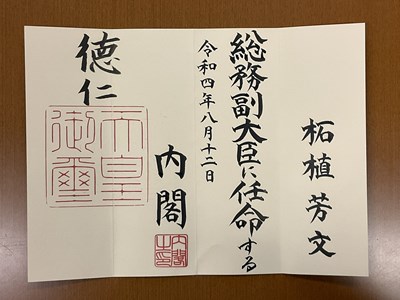 柘植芳文
総務副大臣に任命する
令和四年八月十二日
内閣
内閣之印
徳仁
天皇御璽